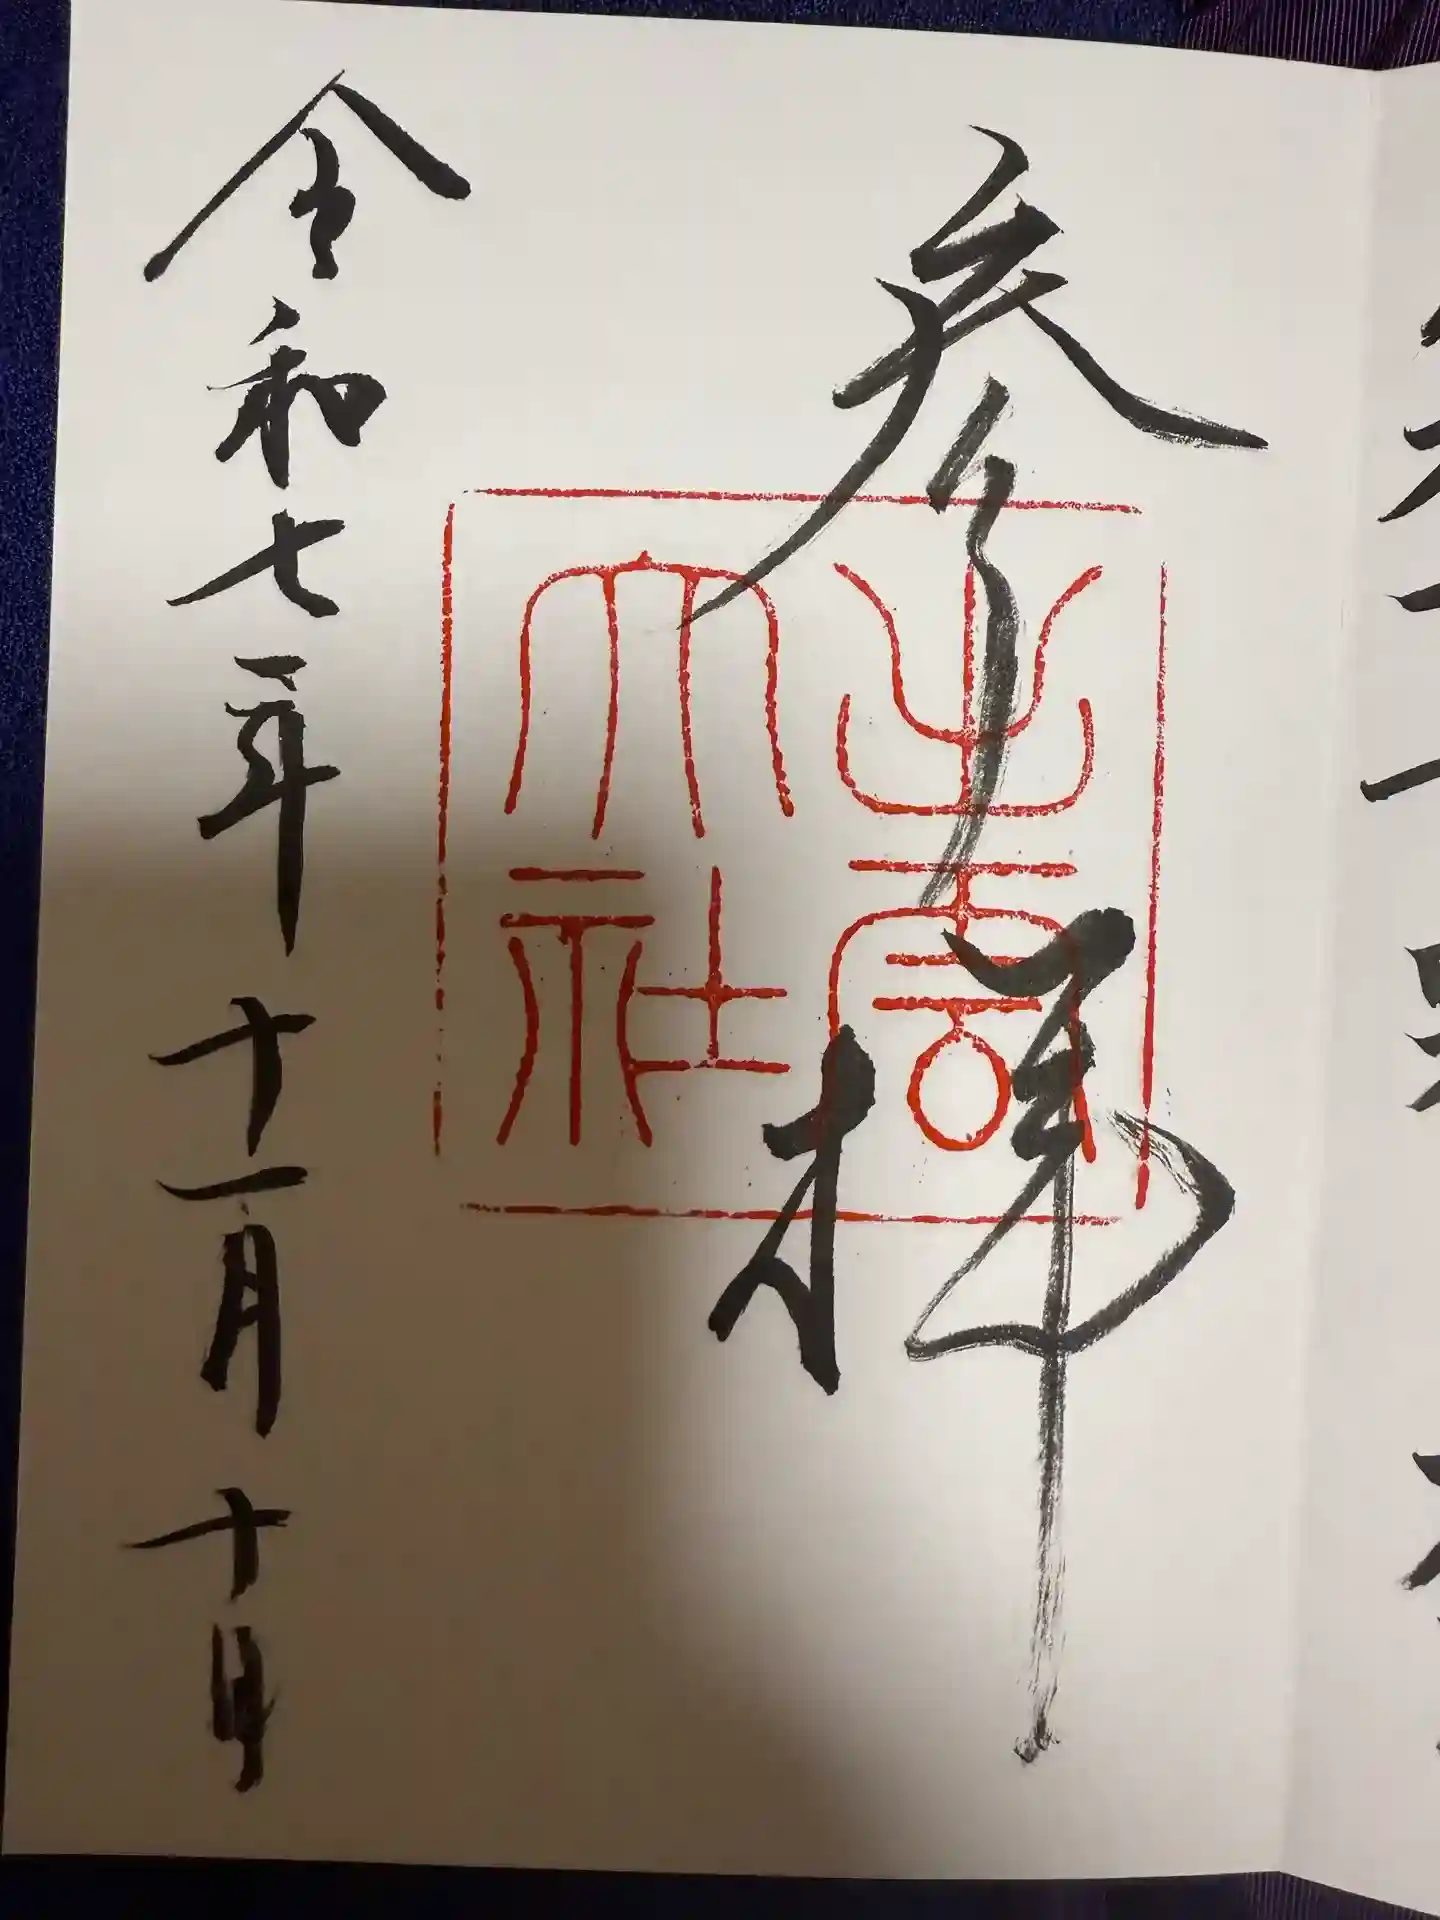 参拝
出雲
大社
令和七年十一月十日